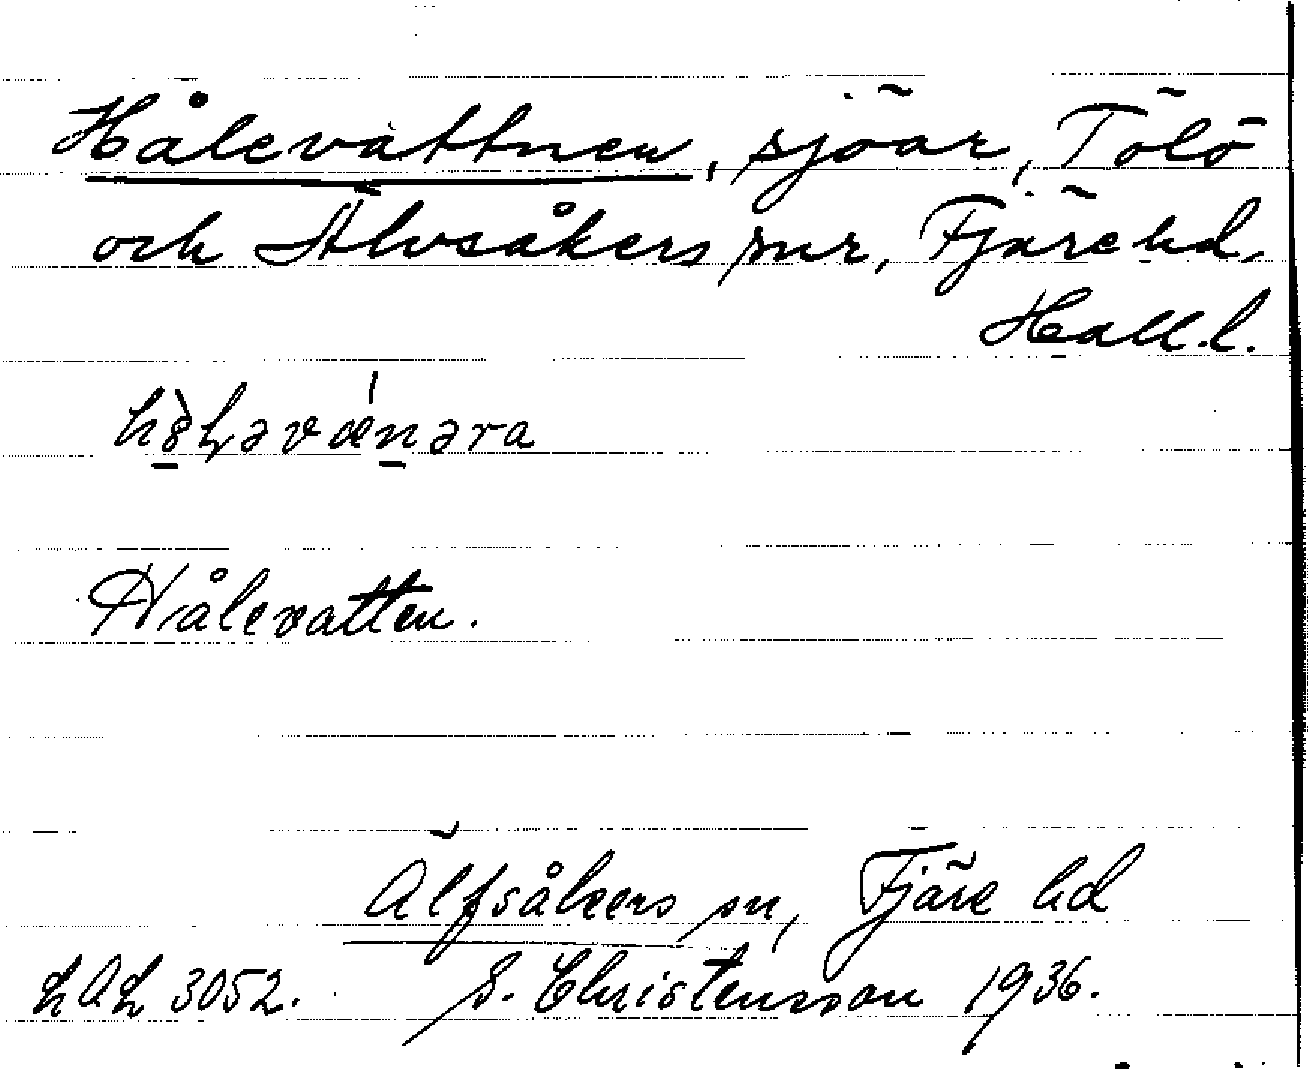 Hålevattnen, sjöar, Tölö
och Älvsåkers snr, Fjäre hd,
Hall.l.
Hålevatten.
Älfsåkers sn, Fjäre hd
LAL 3052. S. Christensson 1936.